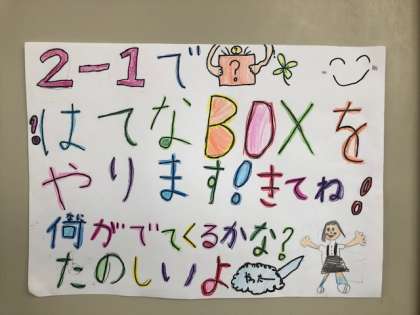 2-1で ?
!はてなBOXを
やります!きてね!
何がでてくるかな?
たのしいよ やったー